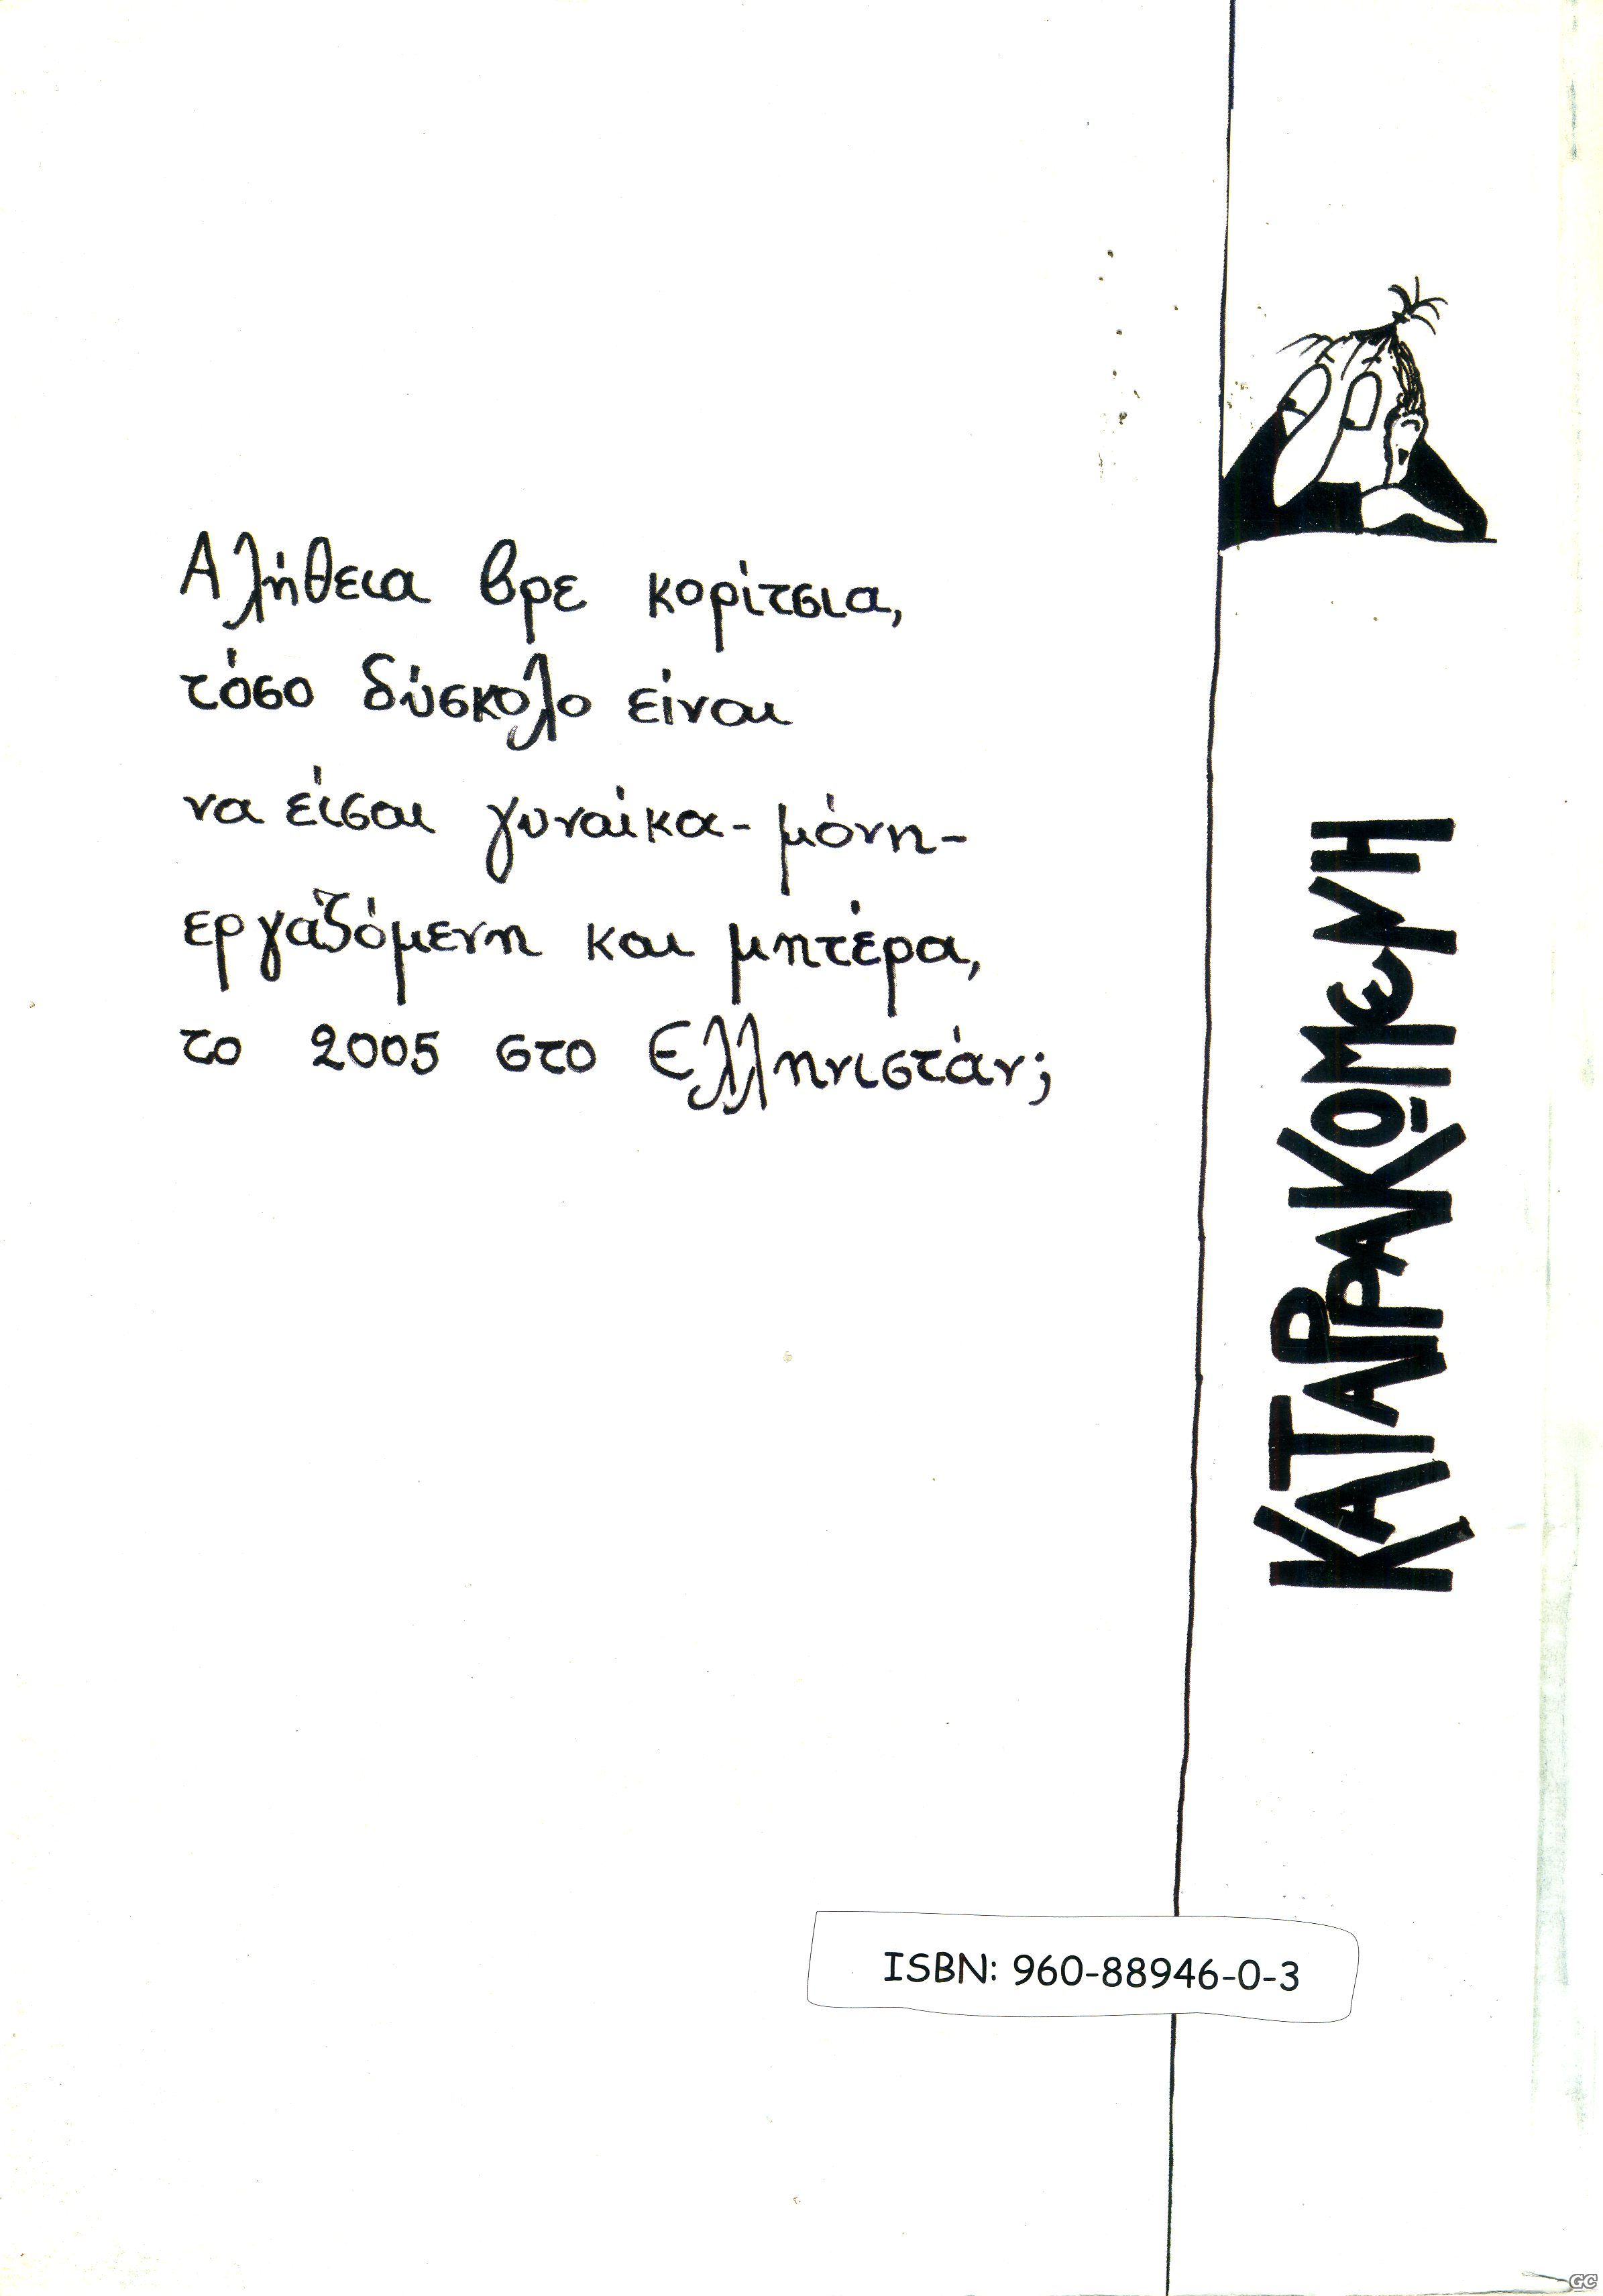 Αλήθεια βρε κορίτσια,
τόσο δύσκολο είναι
να είσαι γυναίκα-μόνη-
εργαζόμενη και μητέρα,
το 2005 στο Ελληνιστάν;
ΚΑΤΑΡΡΑΚΩΜΕΝΗ
ISBN: 960-88946-0-3
GC